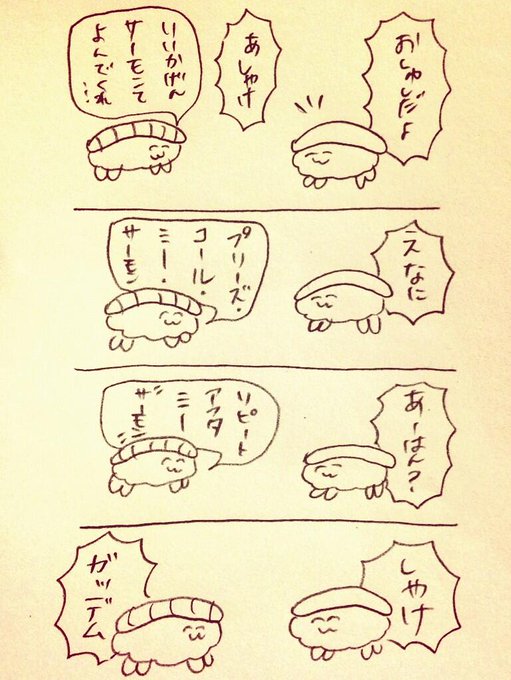 おしゅしだよ
あしゃけ
いいかげん
サーモンて
よんでくれ…
えなに
プリーズ・
コール・
ミー!
サーモン
あーはん?
リピート
アフタ
ミー
サーモン
しゃけ
ガッデム